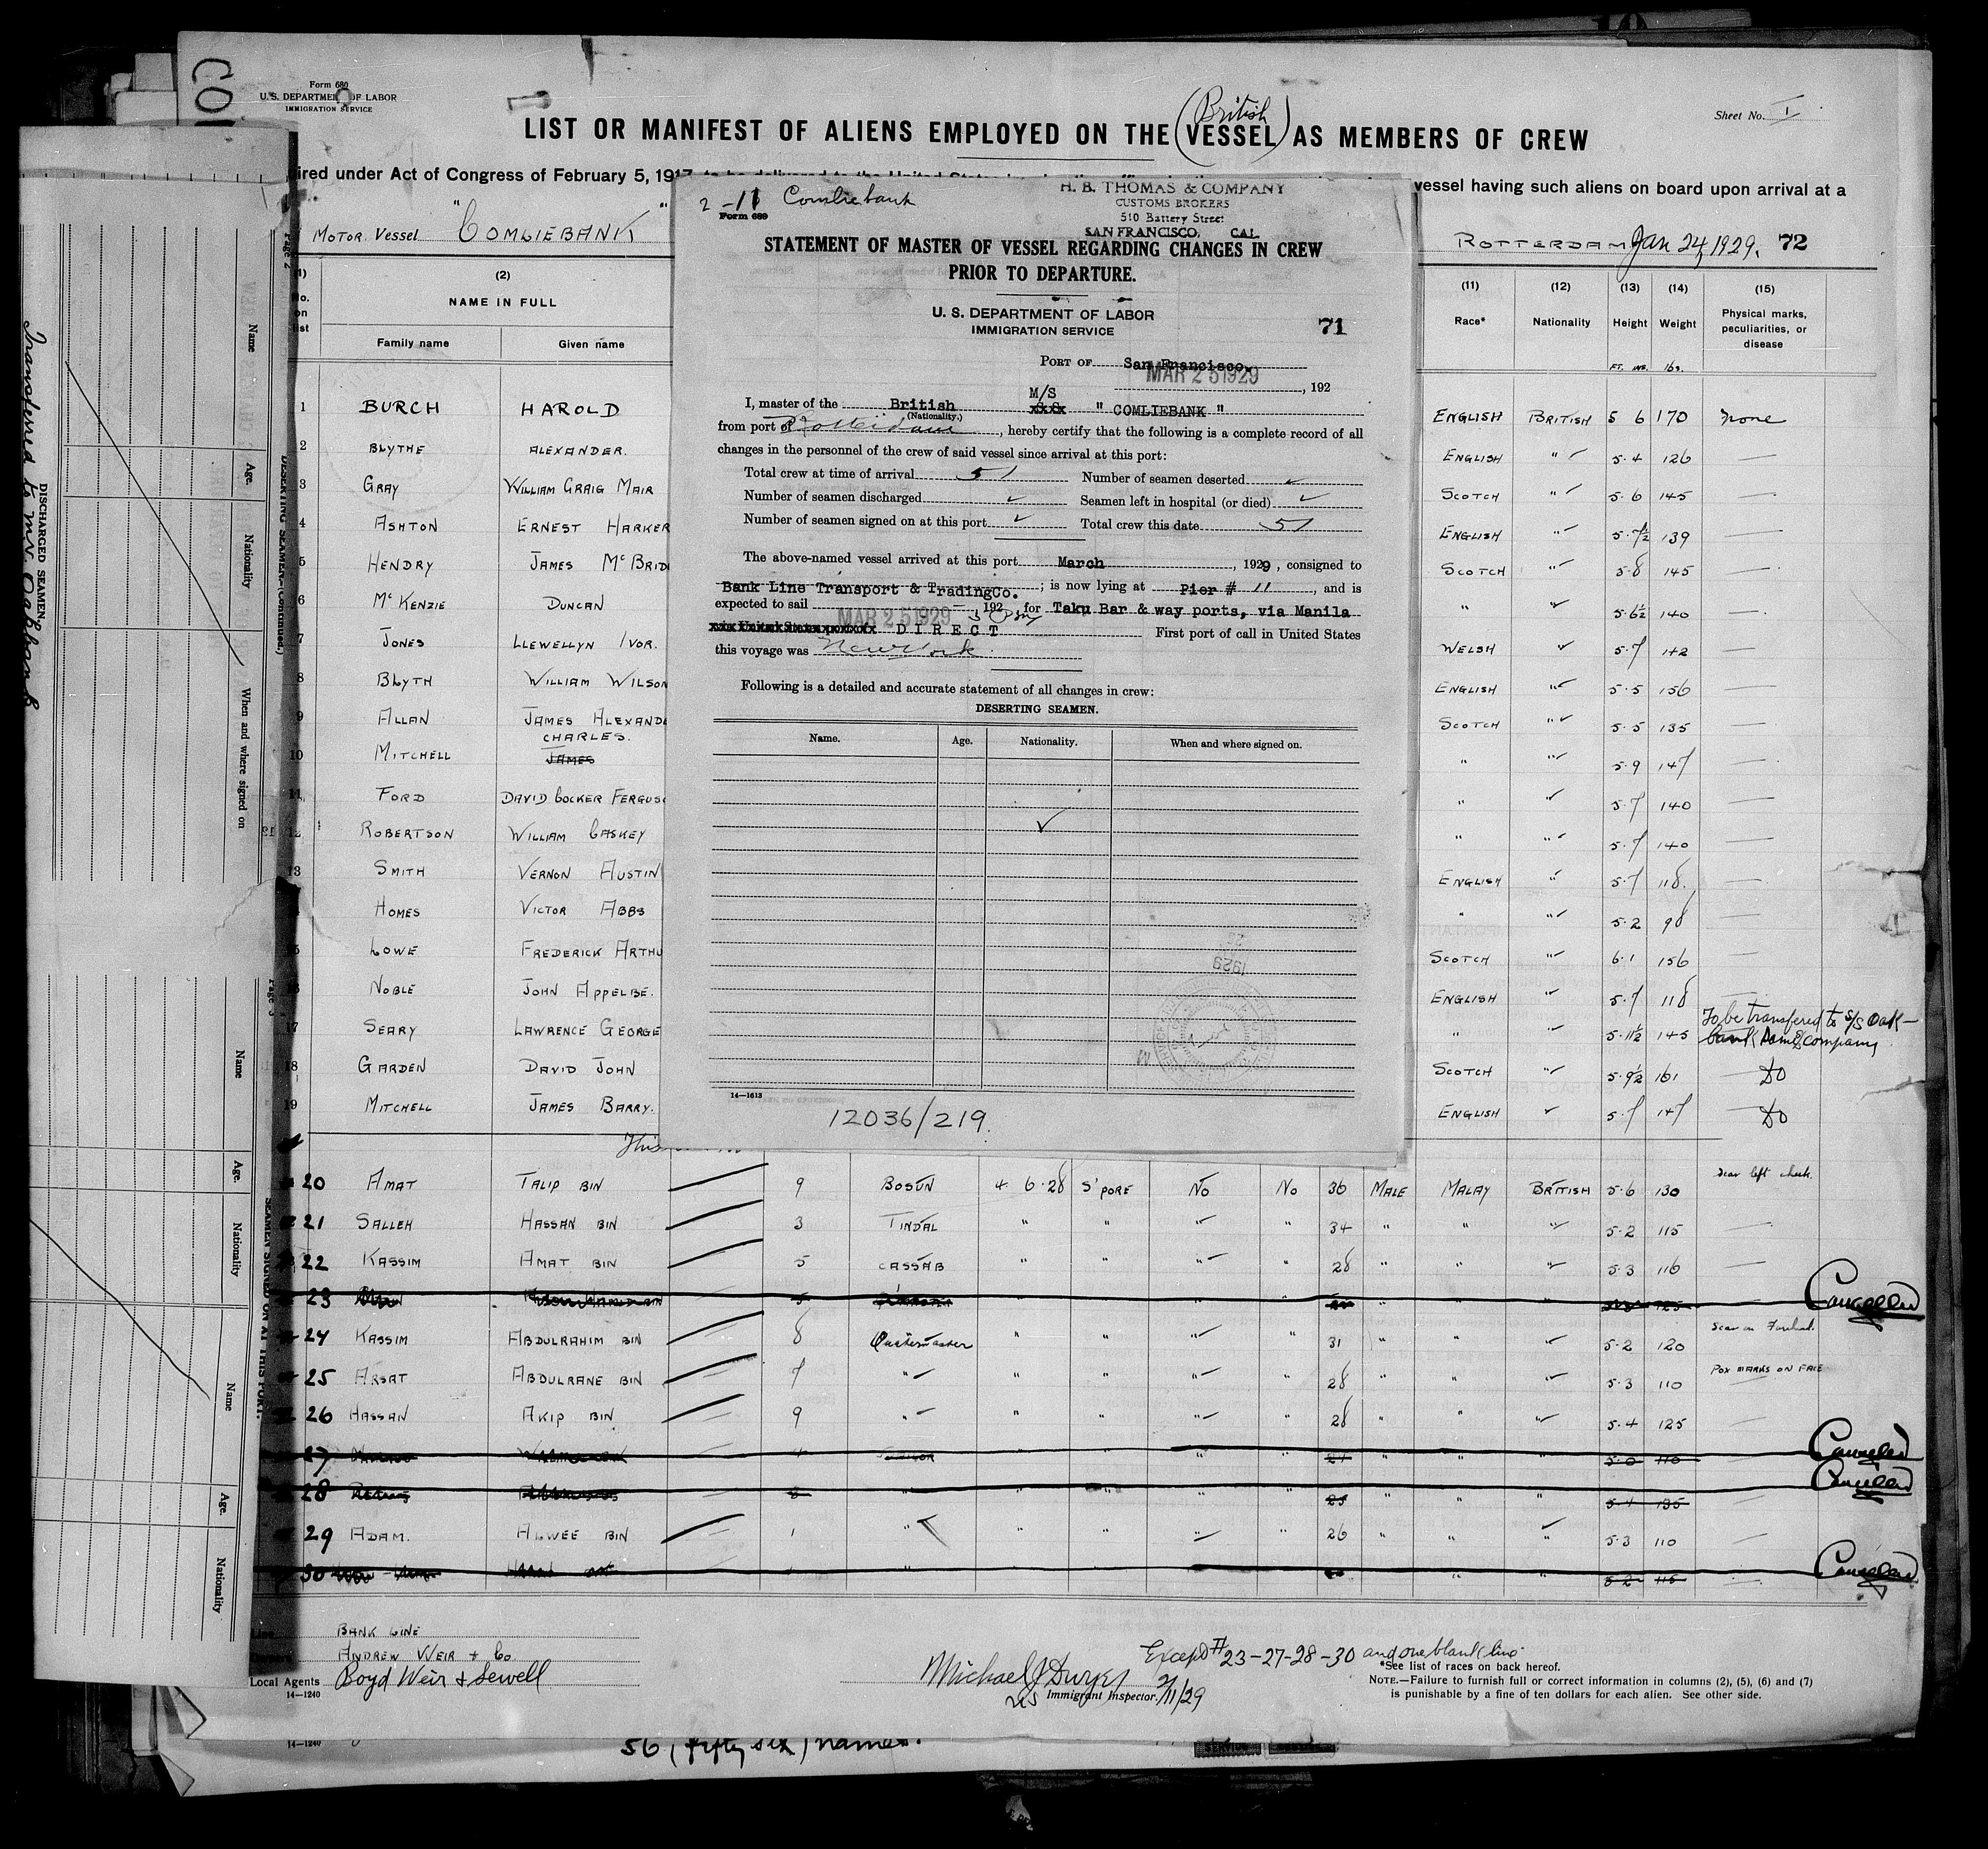 Form 680
U. S. DEPARTMENT OF LABOR
IMMIGRATION SERVICE
Sheet No. I
(British)
LIST OR MANIFEST OF ALIENS EMPLOYED ON THE VESSEL AS MEMBERS OF CREW
ired under Act of Congress of February 5, 1917, to be delivered to the United States
vessel having such aliens on board upon arrival at a
MOTOR Vessel "COMLIEBANK"
ROTTERDAM Jan 24, 1929. 72
(2) (11) (12) (13) (14) (15)
No. on list
NAME IN FULL
Family name Given name
Race* Nationality Height Weight Physical marks, peculiarities, or disease
FT. INS. lbs.
1 BURCH HAROLD ENGLISH BRITISH 5 6 170 none
2 BLYTHE ALEXANDER. ENGLISH " 5.4 126 —
3 GRAY WILLIAM CRAIG MAIR SCOTCH " 5.6 145 —
4 ASHTON ERNEST HARKER ENGLISH " 5.7½ 139 —
5 HENDRY JAMES McBRID SCOTCH " 5.8 145 —
6 McKENZIE DUNCAN " " 5.6½ 140 —
7 JONES LLEWELLYN IVOR. WELSH 5.7 142 —
8 BLYTH WILLIAM WILSON ENGLISH " 5.5 156 —
9 ALLAN JAMES ALEXANDE SCOTCH " 5.5 135 —
CHARLES.
10 MITCHELL JAMES " " 5.9 147 —
11 FORD DAVID COCKER FERGUS " " 5.7 140 —
12 ROBERTSON WILLIAM CASKEY " " 5.7 140 —
13 SMITH VERNON AUSTIN ENGLISH " 5.7 118. —
HOMES VICTOR ABBS " " 5.2 98 —
LOWE FREDERICK ARTHU SCOTCH " 6.1 156 —
NOBLE JOHN APPELBE. ENGLISH " 5.7 118 —
17 SEARY LAWRENCE GEORGE " " 5.11½ 145 To be transfered to S/S Oak-
bank Same company
18 GARDEN DAVID JOHN SCOTCH " 5.9½ 161 — Do
19 MITCHELL JAMES BARRY. ENGLISH 5.7 147 — Do
20 AMAT TALIP BIN 9 BOSUN 4 6.28 S'PORE No No 36 MALE MALAY BRITISH 5.6 130 scar left cheek.
21 SALLEH HASSAN BIN 3 TINDAL " " " " 34 " " " 5.2 115 —
22 KASSIM AMAT BIN 5 CASSAB " " " " 28 " " " 5.3 116 —
23 Cancelled
24 KASSIM ABDULRAHIM BIN 8 Quartermaster " " " " 31 " " " 5.2 120 Scar on Forehead.
25 ARSAT ABDULRANE BIN 7 " " " " " 28 " " " 5.3 110 POX MARKS ON FACE
26 HASSAN AKIP BIN 9 " " " " " 28 " " " 5.4 125 —
27 Cancelled
28 Cancelled
29 ADAM. ALWEE BIN 1 " " " " 26 " " 5.3 110 —
30 Cancelled
BANK LINE
ANDREW WEIR & Co
Local Agents Boyd Weir & Sewell
14—1240
Michael J Dwyer
Immigrant Inspector. 2/11/29
Except # 23-27-28-30 and one blank line.
*See list of races on back hereof.
NOTE.—Failure to furnish full or correct information in columns (2), (5), (6) and (7)
is punishable by a fine of ten dollars for each alien. See other side.
14—1240
56 (fifty six) names.
2-11 Comliebank
Form 689
H. B. THOMAS & COMPANY
CUSTOMS BROKERS
510 Battery Street
SAN FRANCISCO, CAL
STATEMENT OF MASTER OF VESSEL REGARDING CHANGES IN CREW
PRIOR TO DEPARTURE.
U. S. DEPARTMENT OF LABOR
IMMIGRATION SERVICE
71
PORT OF San Francisco.
MAR 25 1929, 192
I, master of the British M/S "COMLIEBANK"
(Nationality.)
from port of Rotterdam, hereby certify that the following is a complete record of all
changes in the personnel of the crew of said vessel since arrival at this port:
Total crew at time of arrival 51 Number of seamen deserted
Number of seamen discharged Seamen left in hospital (or died)
Number of seamen signed on at this port Total crew this date 51
The above-named vessel arrived at this port March, 1929, consigned to
Bank Line Transport & Trading Co.; is now lying at Pier # 11, and is
expected to sail MAR 25 1929 192 5 pm for Taku Bar & way ports, via Manila
DIRECT First port of call in United States
this voyage was New York
Following is a detailed and accurate statement of all changes in crew:
DESERTING SEAMEN.
Name. Age. Nationality. When and where signed on.
14—1613
12036/219.
Transferred to M.V. Oakbank
DISCHARGED SEAMEN.
Name Age. Nationality When and where signed on
Page 2
DESERTING SEAMEN—(Continued.)
Page 3
SEAMEN SIGNED ON AT THIS PORT.
Name Age. Nationality
Name Age. Nationality